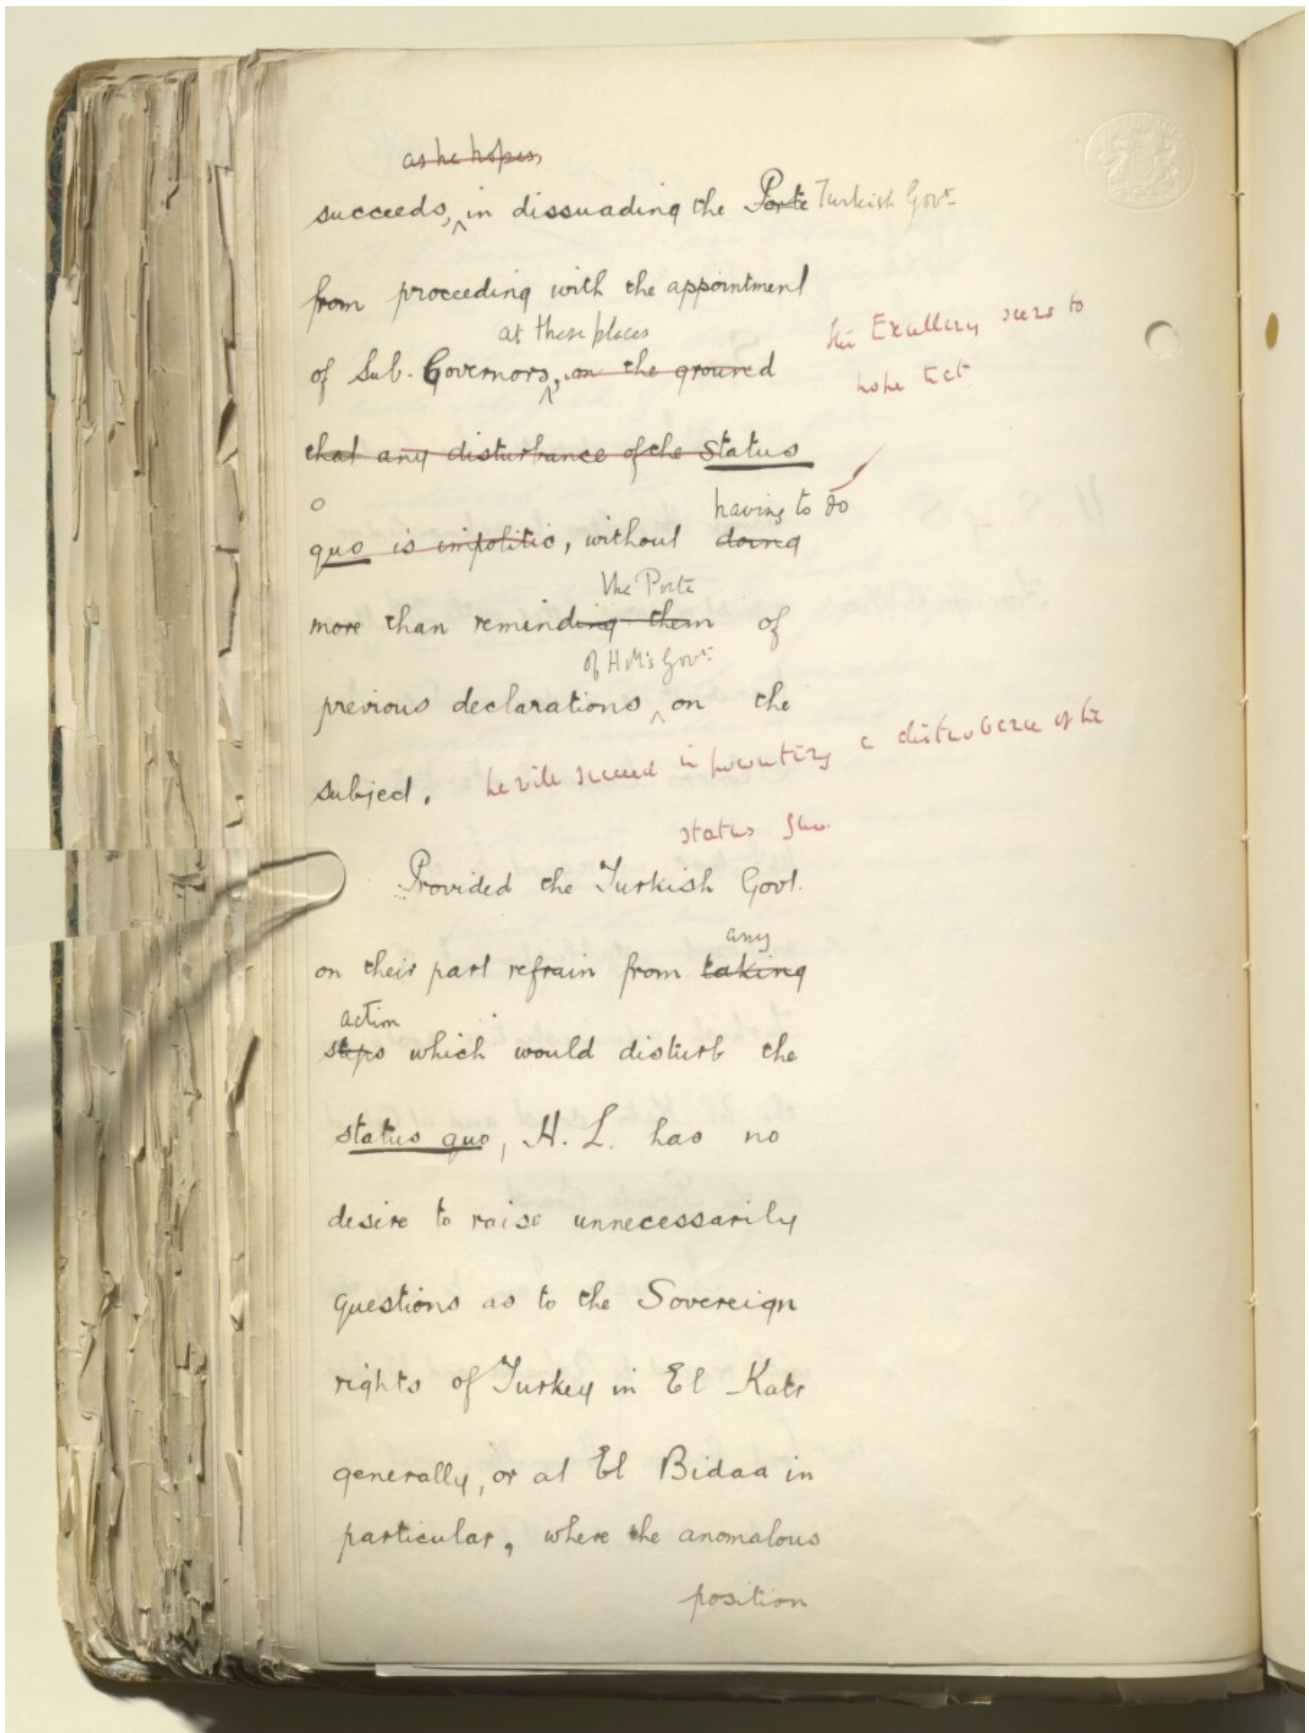 as he hopes,
succeeds, in dissuading the Porte Turkish Govt.
from proceeding with the appointment
at these places
of Sub-Governors, on the ground
His Excellency seems to
hope that
that any disturbance of the status
having to do
quo is impolitic, without doing
the Porte
more than reminding them of
of H.M's Govt.
previous declarations on the
subject. he will succeed in preventing a disturbance of the
status quo.
Provided the Turkish Govt.
any
on their part refrain from taking
action
steps which would disturb the
status quo, H. L. has no
desire to raise unnecessarily
questions as to the Sovereign
rights of Turkey in El Katr
generally, or at El Bidaa in
particular, where the anomalous
position